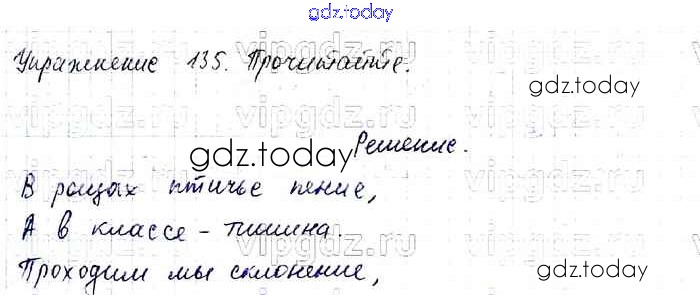 gdz.today
Упражнение 135. Прочитайте.
gdz.today
gdz.today
Решение.
В рощах птичье пение,
А в классе - тишина.
Проходим мы склонение,
gdz.today
vipgdz.ru